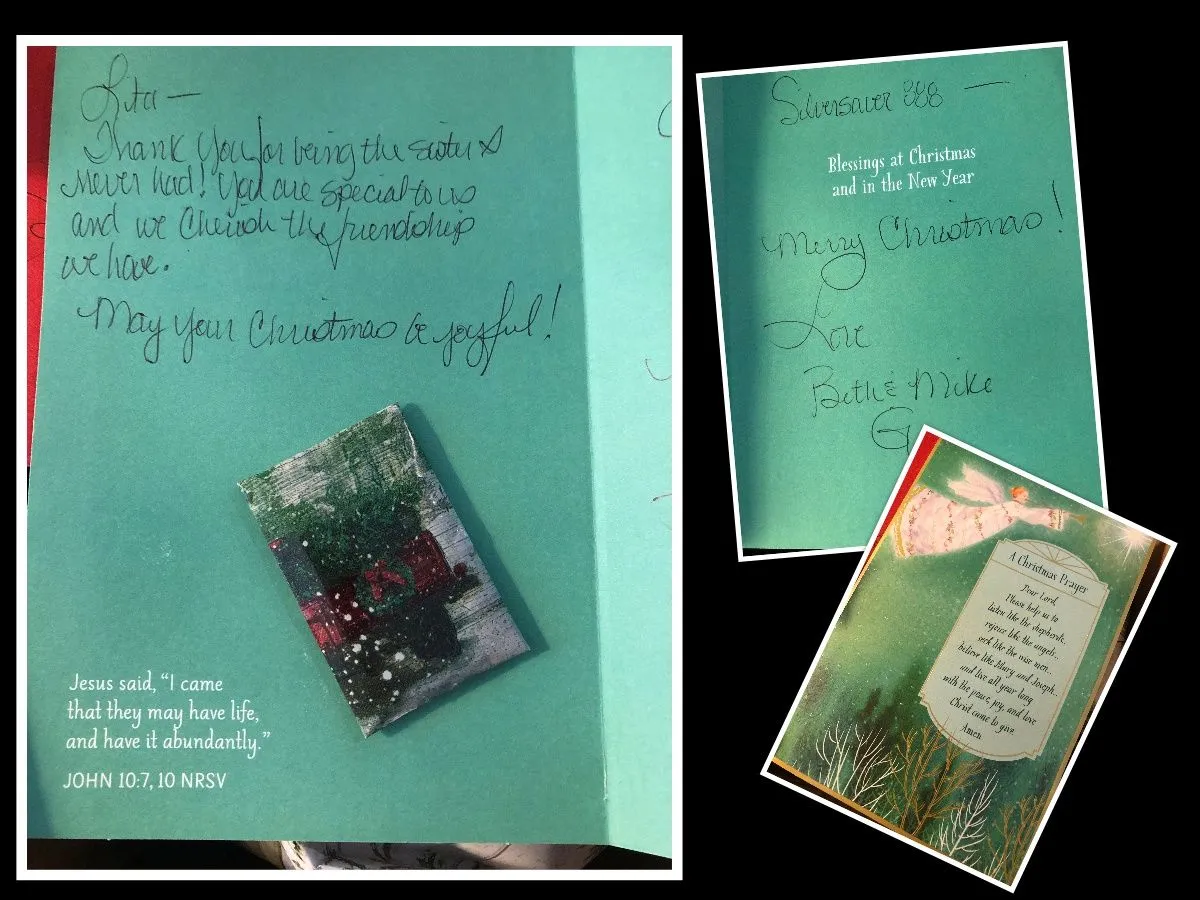 Rita —
Thank you for being the sister I
never had! You are special to us
and we cherish the friendship
we have.
May your Christmas be joyful!
Jesus said, “I came
that they may have life,
and have it abundantly.”
JOHN 10:7, 10 NRSV
Silversaver 888 —
Blessings at Christmas
and in the New Year
Merry Christmas!
Love
Beth & Mike
G
A Christmas Prayer
Dear Lord,
Please help us to
listen like the shepherds,
rejoice like the angels...
seek like the wise men...
believe like Mary and Joseph...
and live all year long
with the peace, joy, and love
Christ came to give.
Amen.